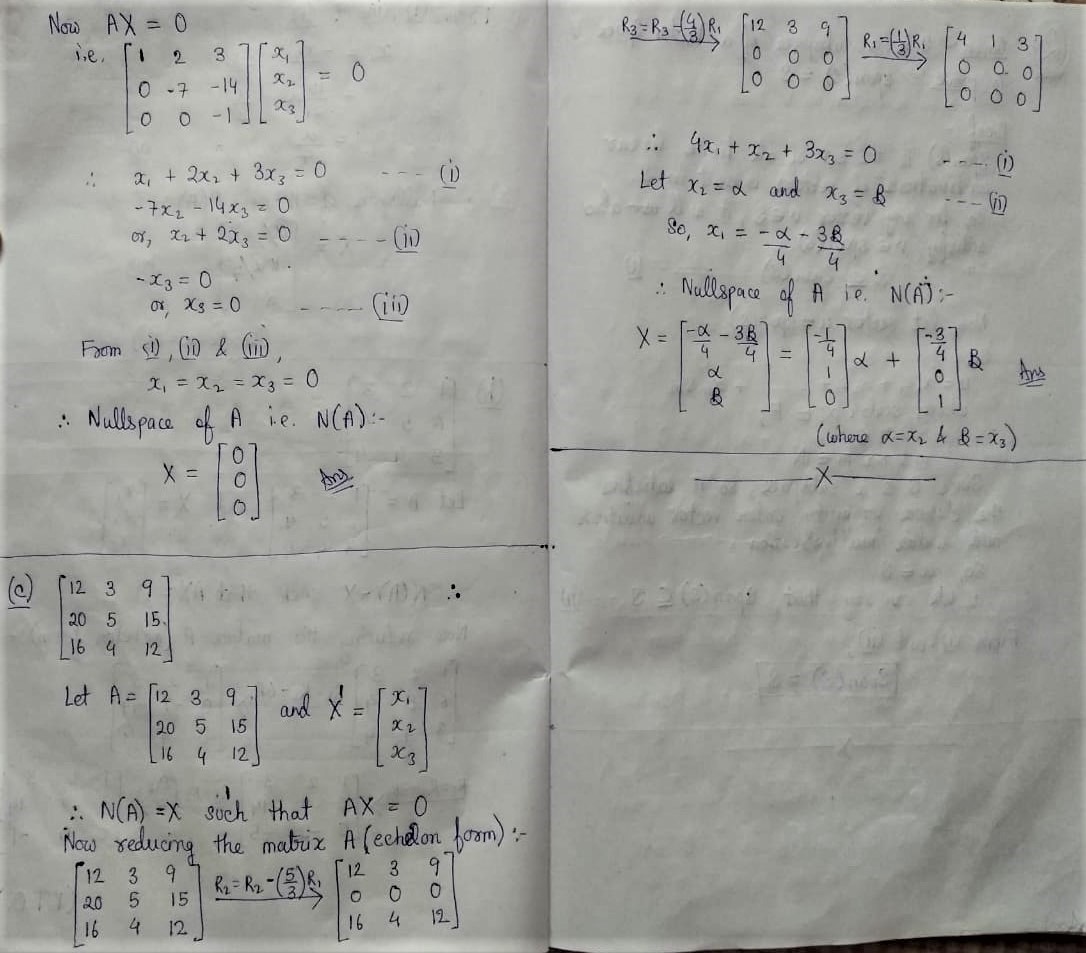 Now AX = 0
i.e. [1 2 3; 0 -7 -14; 0 0 -1] [x₁; x₂; x₃] = 0
∴ x₁ + 2x₂ + 3x₃ = 0 --- (i)
-7x₂ - 14x₃ = 0
or, x₂ + 2x₃ = 0 ---- (ii)
-x₃ = 0
or, x₃ = 0 ------ (iii)
From (i), (ii) & (iii),
x₁ = x₂ = x₃ = 0
∴ Nullspace of A i.e. N(A):-
X = [0; 0; 0] Ans
(c) [12 3 9; 20 5 15; 16 4 12] ∴
Let A = [12 3 9; 20 5 15; 16 4 12] and X = [x₁; x₂; x₃]
∴ N(A) = X such that AX = 0
Now reducing the matrix A (echelon form) :-
[12 3 9; 20 5 15; 16 4 12] R₂=R₂-(5/3)R₁ → [12 3 9; 0 0 0; 16 4 12]
R₃=R₃-(4/3)R₁ → [12 3 9; 0 0 0; 0 0 0] R₁=(1/3)R₁ → [4 1 3; 0 0 0; 0 0 0]
∴ 4x₁ + x₂ + 3x₃ = 0 --- (i)
Let x₂ = α and x₃ = β --- (ii)
So, x₁ = -α/4 - 3β/4
∴ Nullspace of A i.e. N(A):-
X = [-α/4 - 3β/4; α; β] = [-1/4; 1; 0] α + [-3/4; 0; 1] β Ans
(where α=x₂ & β=x₃)
X